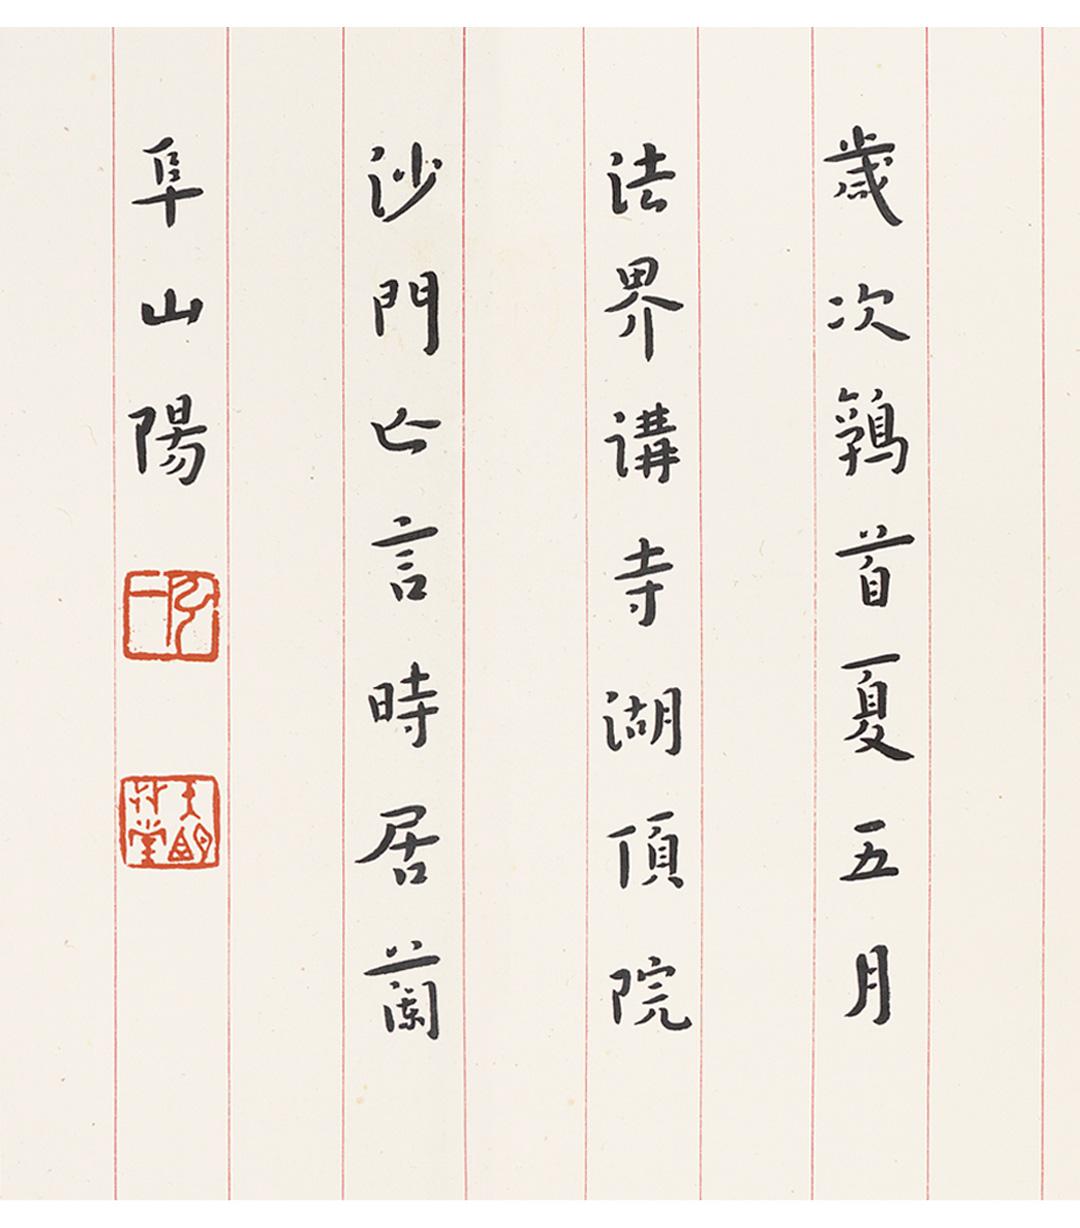 歲次鶉首夏五月
法界講寺湖頂院
沙門亡言時居蘭
阜山陽
弘一